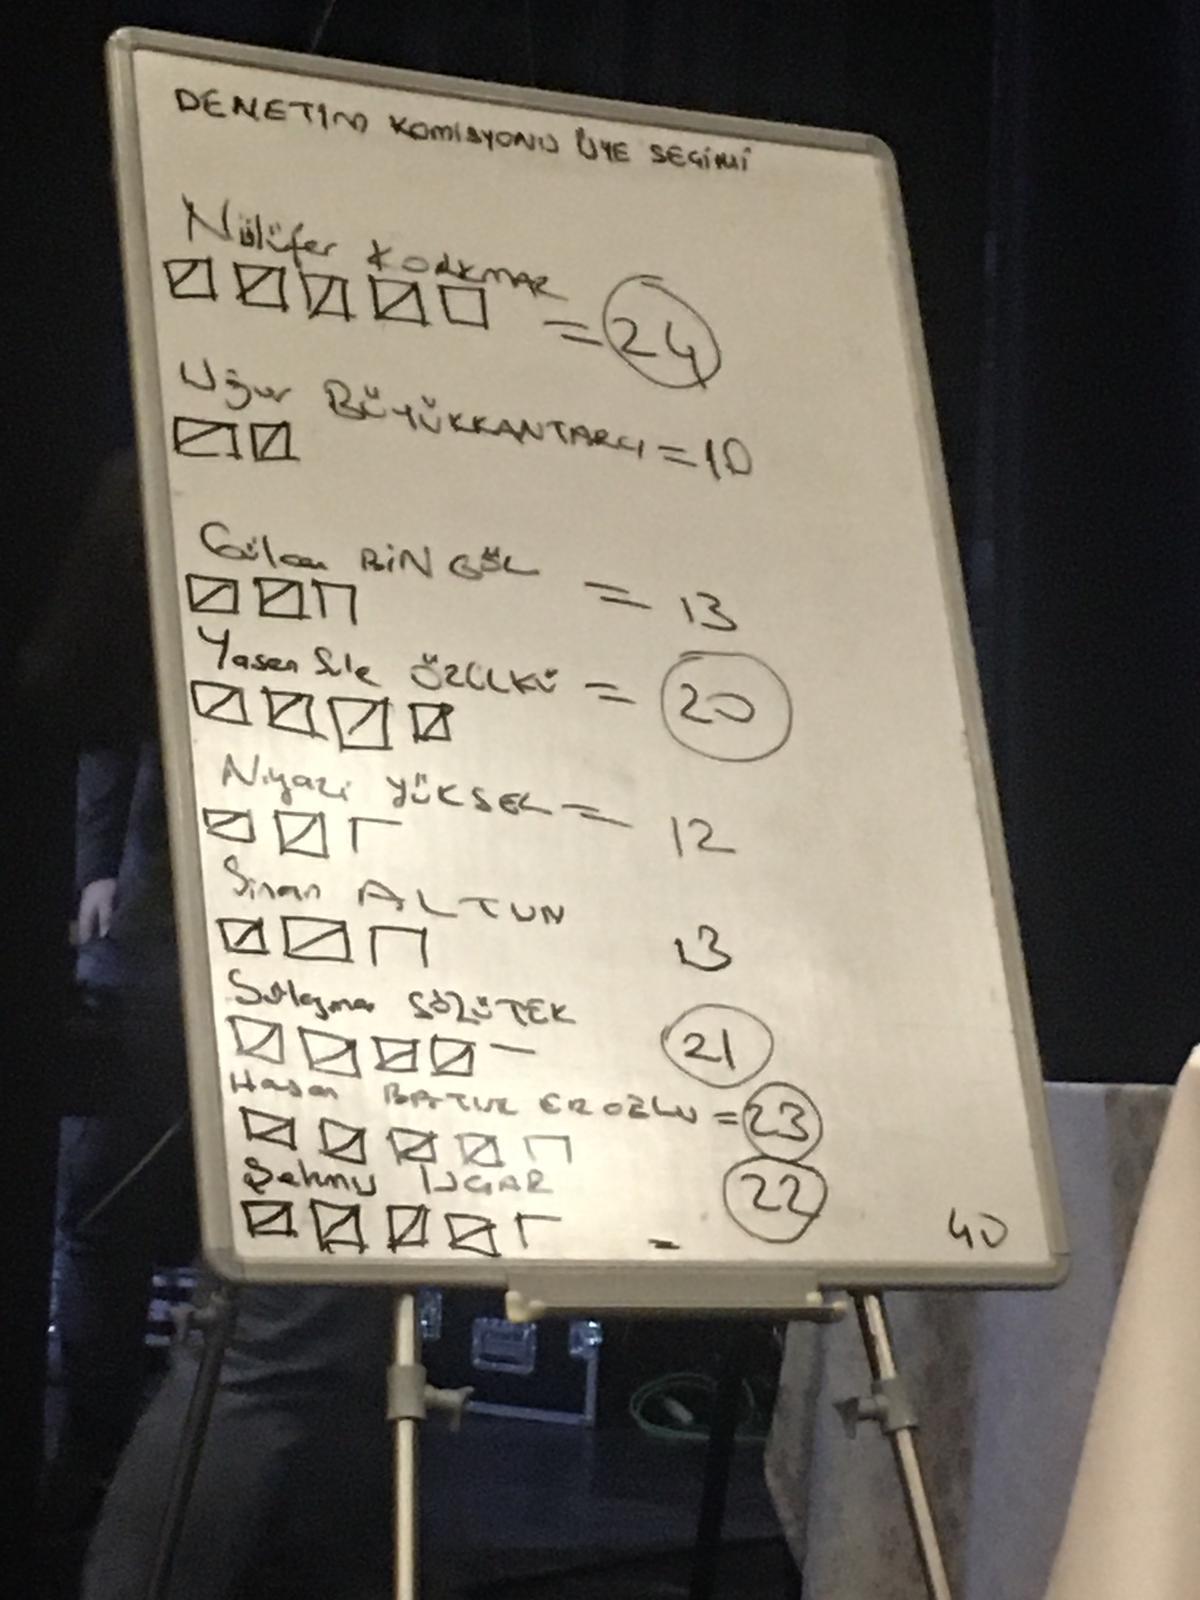 DENETİM KOMİSYONU ÜYE SEÇİMİ
Nülüfer KORKMAZ
= 24
Uğur BÜYÜKKANTARCI = 10
Gülcan BİNGÖL = 13
Yasen Sule ÖZÜLKÜ = 20
Niyazi YÜKSEL = 12
Sinan ALTUN 13
Süleyman SÖZÜTEK 21
Hasan BATUR EROĞLU = 23
Şehmu UÇAR = 22
40